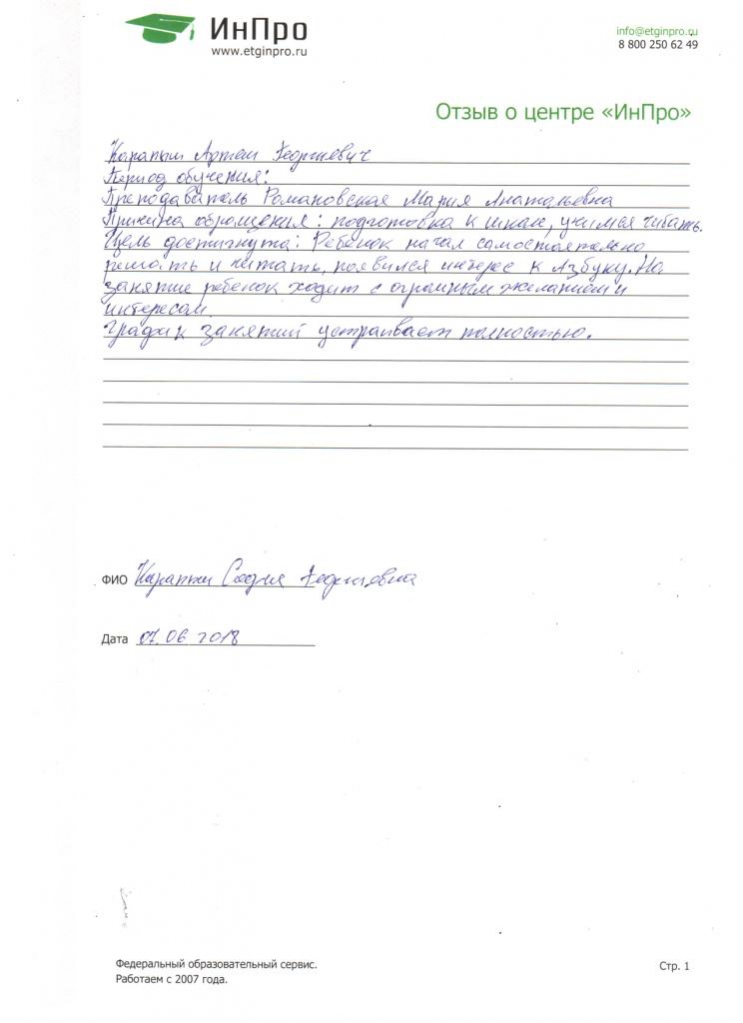 ИнПро
www.etginpro.ru
info@etginpro.ru
8 800 250 62 49
Отзыв о центре «ИнПро»
Артем Георгиевич
Период обучения:
Преподаватель Романовская Мария Анатольевна
Причина обращения: подготовка к школ, учимся читать.
Цель достигнута: Ребёнок начал самостоятельно
и читать, появился интерес к Азбуку. На
занятие ребенок ходит с огромным желанием и
интересом.
График занятий устраивает полностью.
ФИО София Георгиевна
Дата 07.06 2018
Федеральный образовательный сервис.
Работаем с 2007 года.
Стр. 1